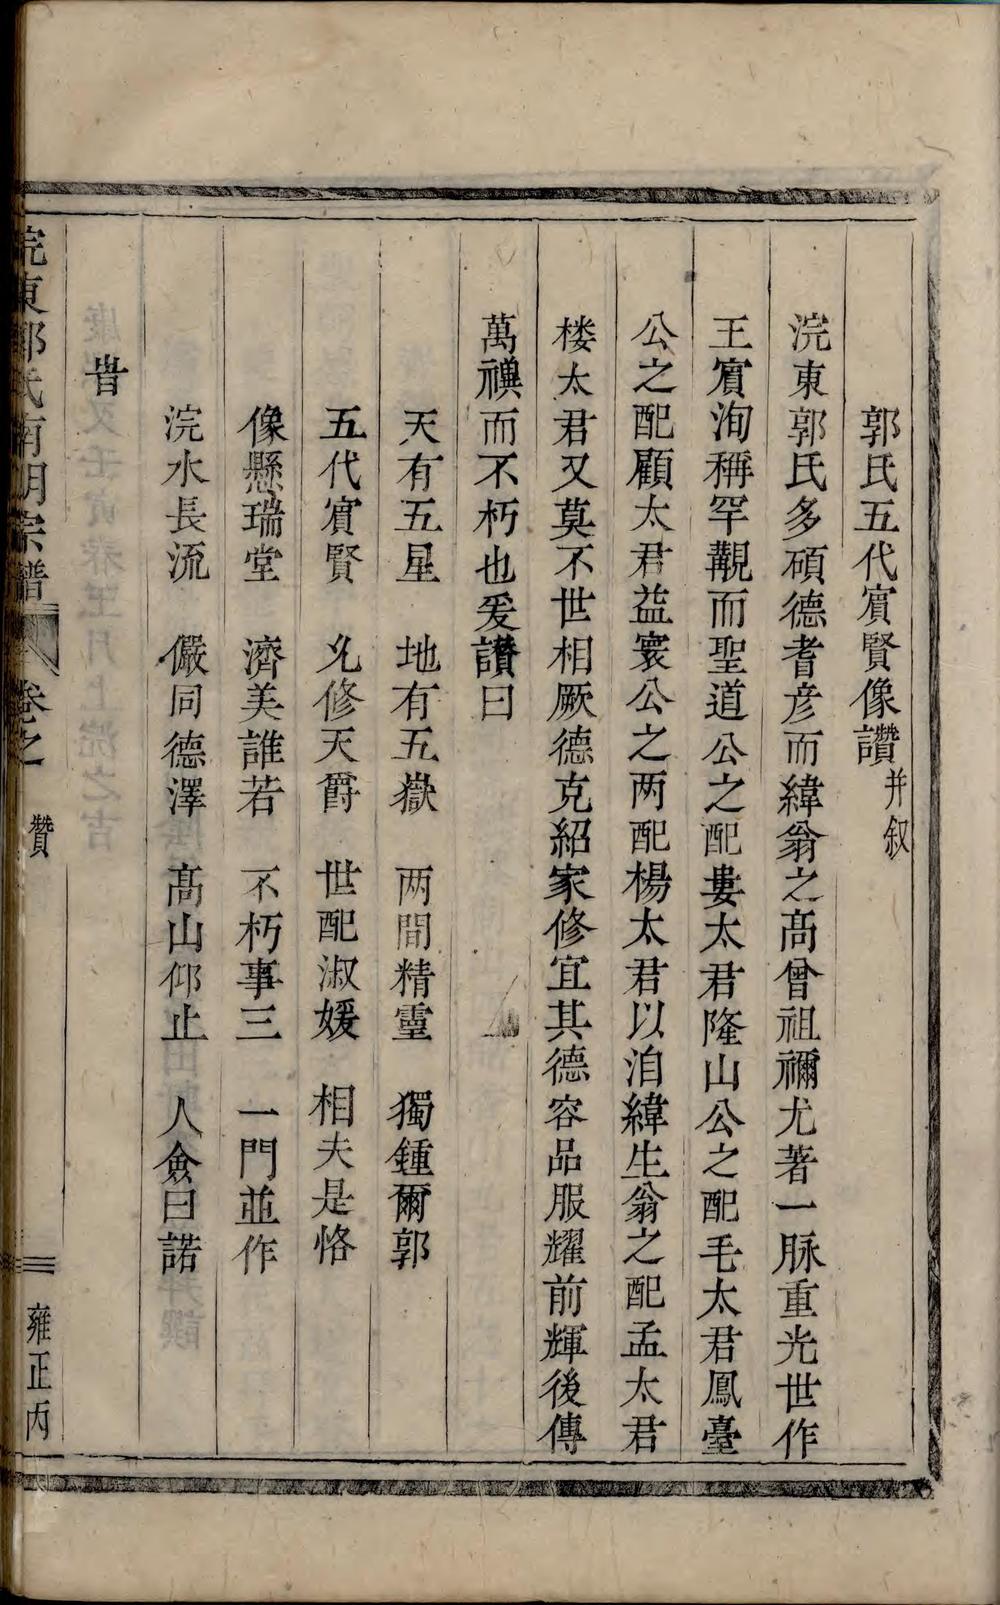 郭氏五代賔賢像讚并叙
浣東郭氏多碩德耆彦而緯翁之高曾祖禰尤著一脉重光世作
王賔洵稱罕覯而聖道公之配婁太君隆山公之配毛太君鳳臺
公之配顧太君益寰公之两配楊太君以洎緯生翁之配孟太君
楼太君又莫不世相厥德克紹家修宜其德容品服耀前輝後傳
萬禩而不朽也爰讃曰
天有五星　地有五嶽　两間精靈　獨鍾爾郭
五代賔賢　允修天爵　世配淑媛　相夫是恪
像懸瑞堂　濟美誰若　不朽事三　一門並作
浣水長流　儼同德澤　高山仰止　人僉曰諾
旹
浣東郭氏南明宗譜　卷之　贊　雍正丙